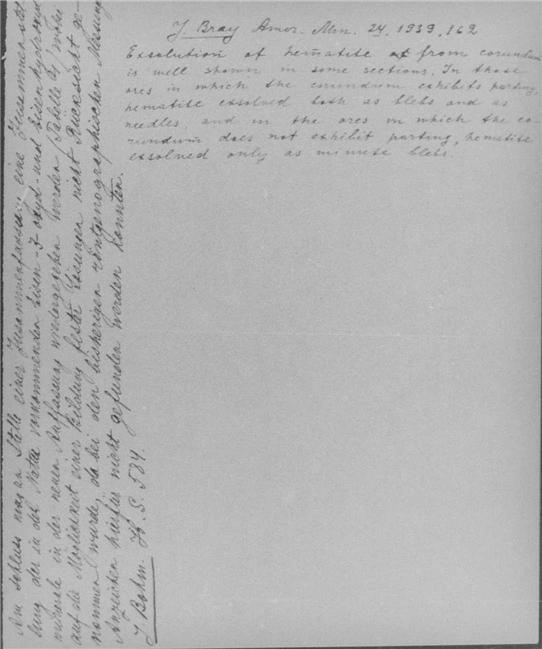 J Bray Amer. Min. 24, 1939, 162
Exsolution of hematite from corundum
is well shown in some sections. In those
ores in which the corundum exhibits parting,
hematite exsolved both as blebs and as
needles, and in the ores in which the co-
rundum does not exhibit parting, hematite
exsolved only as minute blebs.
Am Schluss mag an Stelle einer Zusammenfassung eine Zusammenstel
lung der in der Natur vorkommenden Eisen-3 oxyd- und Eisenhydroxyd
minerale in der neuen Auffassung wiedergegeben werden (Tabelle 6), wobei
auf die Möglichkeit einer Bildung fester Lösungen nicht Rücksicht ge-
nommen wurde, da bei den bisherigen röntgenographischen Messung
Anzeichen hierfür nicht gefunden werden konnten.
J Böhm. S. 587.